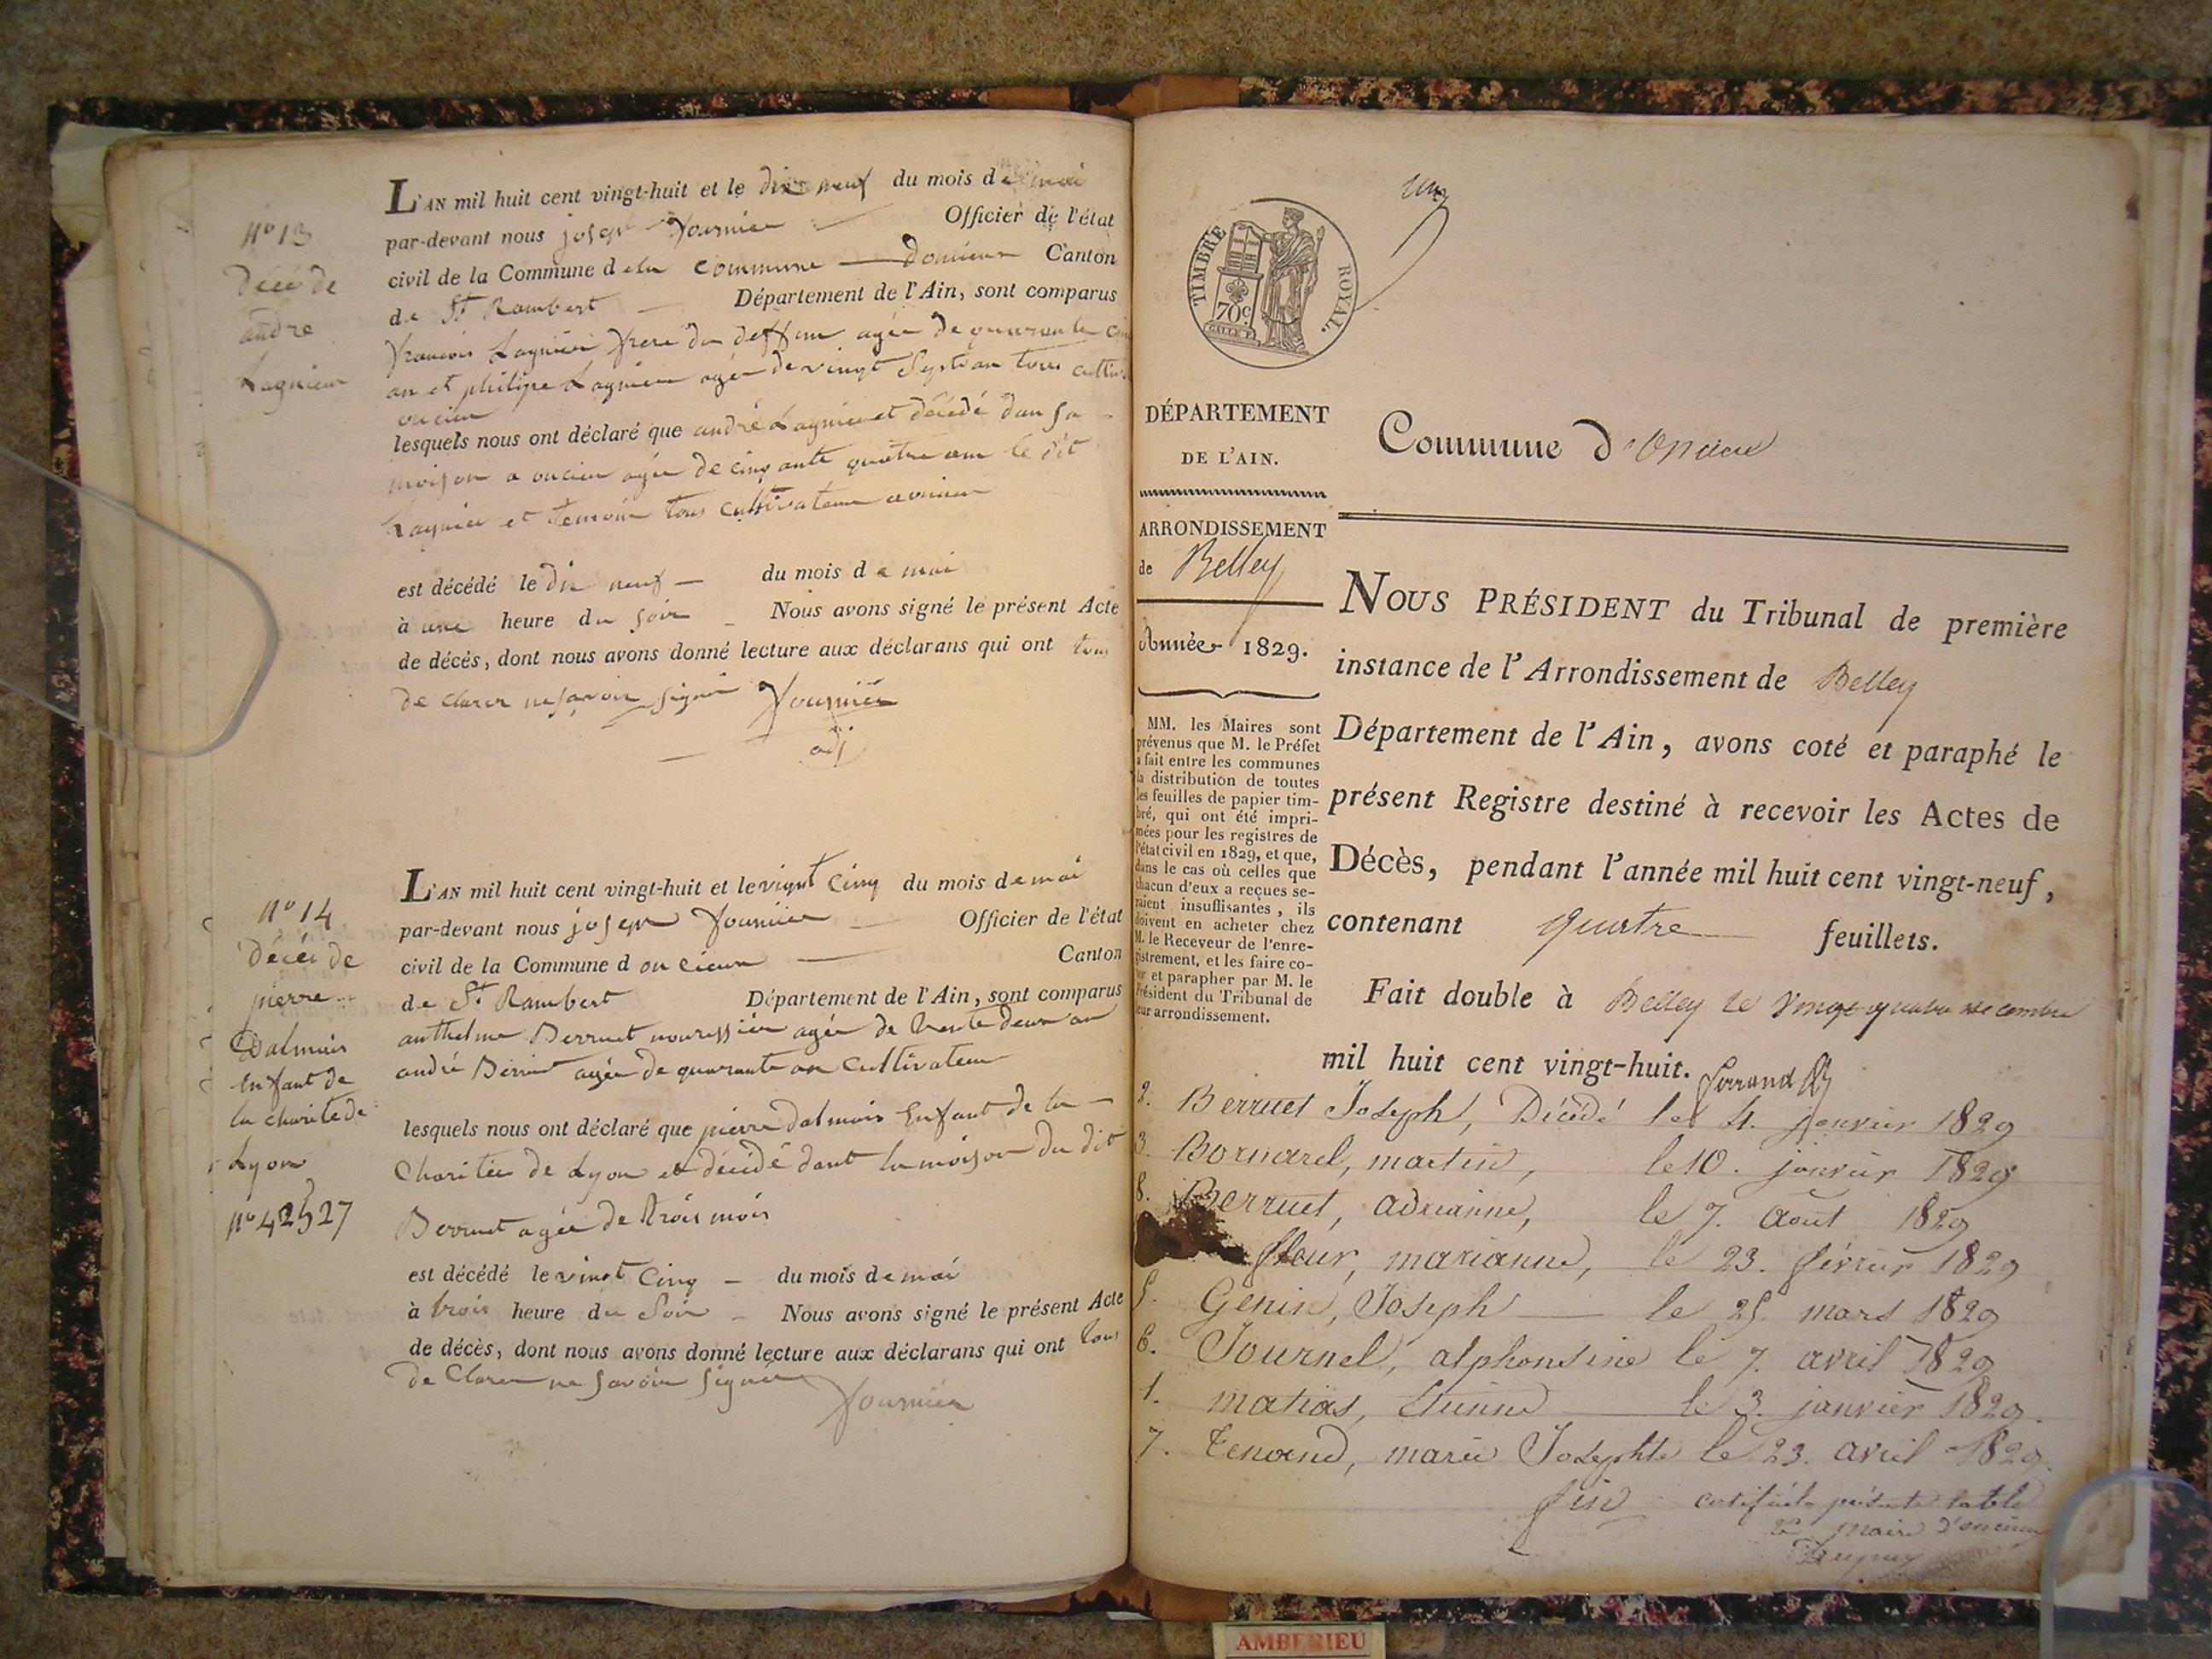 N° 13
Décé de
andre
Lagnieu
L'AN mil huit cent vingt-huit et le dix neuf du mois de mai
par-devant nous joseph fournier Officier de l'état
civil de la Commune d ela commune Doncieux Canton
de St Rambert Département de l'Ain, sont comparus
francois Lagnieu frere du deffun agée de quarante
an et philipe Lagnieu agée de vingt Septe an tous
oncieu
lesquels nous ont déclaré que andré Lagnieu et décedé dan sa
moison a oncieu agée de cinquante quatre ans le dit
Lagnieu et temoin tous cultivateur a oncieu
est décédé le dix neuf du mois de mai
à une heure du soir Nous avons signé le présent Acte
de décès, dont nous avons donné lecture aux déclarans qui ont tous
de clarer ne savoir signé fournier
adj
N° 14
Décés de
pierre
Dalmais
Enfant de
la charité de
Lyon
N° 42527
L'AN mil huit cent vingt-huit et le vignt Cinq du mois de mai
par-devant nous joseph fournier Officier de l'état
civil de la Commune d oncieux Canton
de St Rambert Département de l'Ain, sont comparus
anthelme Berruet nourissier agée de trente deux an
andré Berruet agée de quarante an cultivateur
lesquels nous ont déclaré que pierre dalmais Enfant de la
Charitée de Lyon et décédé dant la moison du dit
Berruet agée de trois mois
est décédé le vingt Cinq du mois de mai
à trois heure du Soir Nous avons signé le présent Acte
de décès, dont nous avons donné lecture aux déclarans qui ont tous
de Clarer ne savoir signer fournier
un
TIMBRE ROYAL.
70c.
DÉPARTEMENT
DE L'AIN.
ARRONDISSEMENT
de Belley
Année 1829.
MM. les Maires sont
prévenus que M. le Préfet
a fait entre les communes
la distribution de toutes
les feuilles de papier tim-
bré, qui ont été impri-
mées pour les registres de
l'état civil en 1829, et que,
dans le cas où celles que
chacun d'eux a reçues se-
raient insuffisantes, ils
doivent en acheter chez
M. le Receveur de l'enre-
gistrement, et les faire co-
ter et parapher par M. le
Président du Tribunal de
leur arrondissement.
Commune d'Oncieu
NOUS PRÉSIDENT du Tribunal de première
instance de l'Arrondissement de Belley
Département de l'Ain, avons coté et paraphé le
présent Registre destiné à recevoir les Actes de
Décès, pendant l'année mil huit cent vingt-neuf,
contenant quatre feuillets.
Fait double à Belley le vingt quatre decembre
mil huit cent vingt-huit.
2. Berruet Joseph, Décédé le 4. janvier 1829
3. Bornarel, martin, le 10. janvier 1829
8. Berruet, adrianne, le 7. Août 1829
fleur, marianne, le 23. février 1829
5. Genin, Joseph le 25 mars 1829
6. Journel, alphonsine le 7. avril 1829
1. matias, Etienne le 3. janvier 1829.
7. Tenand, marie Josephte le 23. avril 1829.
fin certifié la présente table
le maire d'oncieu
Dupuy
AMBERIEU